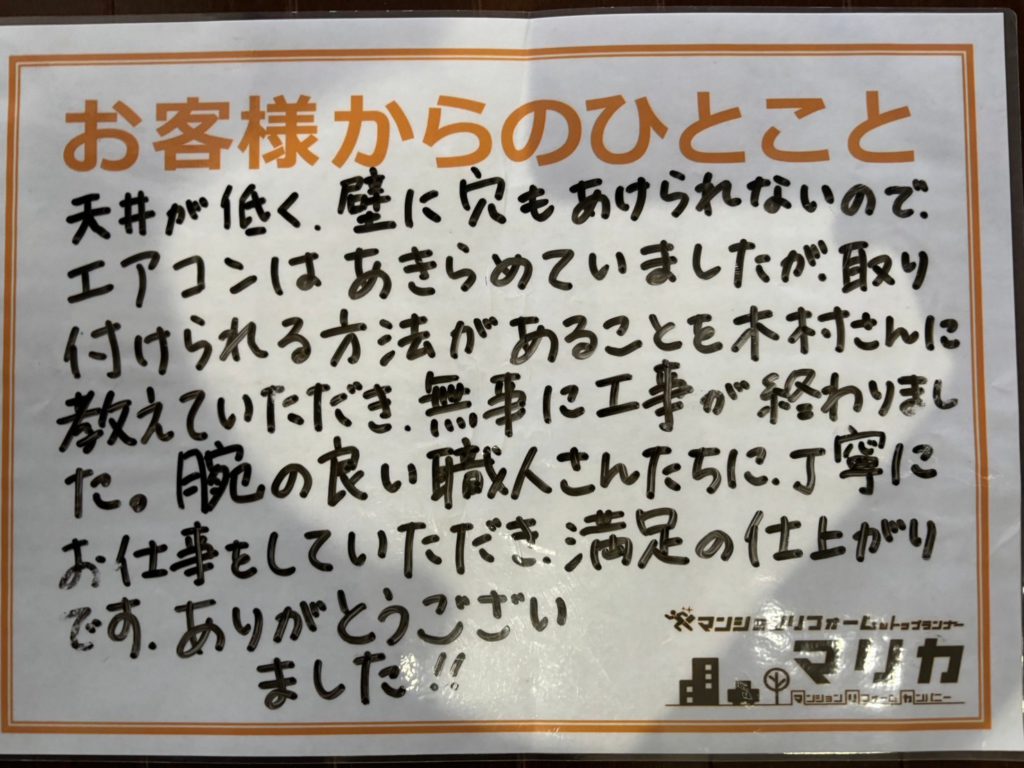 お客様からのひとこと
天井が低く、壁に穴もあけられないので、
エアコンはあきらめていましたが、取り
付けられる方法があることを木村さんに
教えていただき、無事に工事が終わりまし
た。腕の良い職人さんたちに、丁寧に
お仕事をしていただき、満足の仕上がり
です。ありがとうござい
ました!!
マンションリフォームのトップランナー
マリカ
マンションリフォームカンパニー